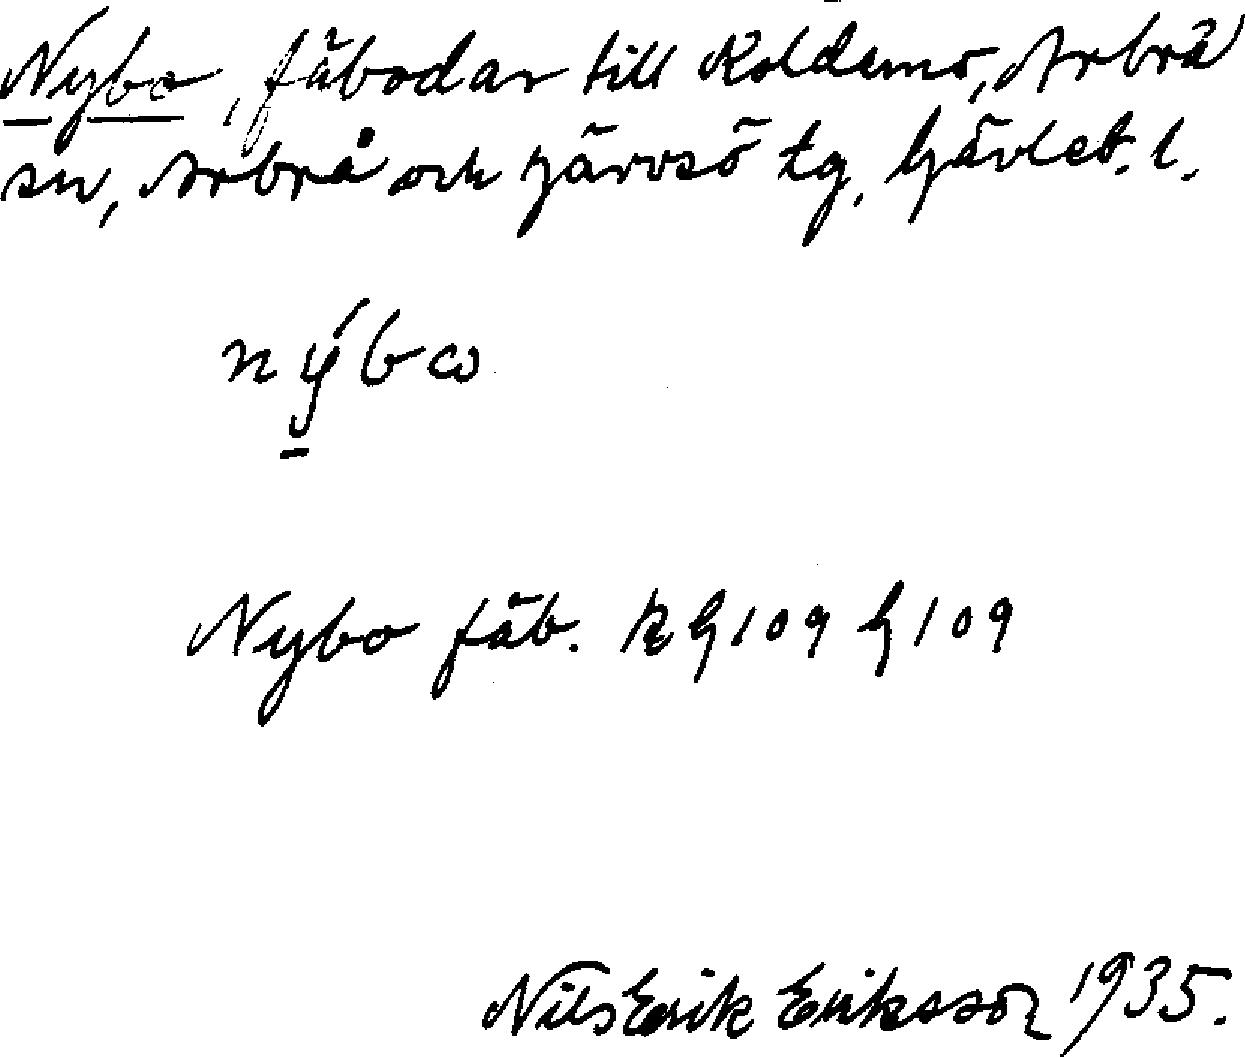 Nybo, fäbodar till Koldemo, Arbrå
sn, Arbrå och Järvsö tg, Gävleb. l.
nýbω
Nybo fäb. RG109 G109
Nils Erik Eriksson 1935.